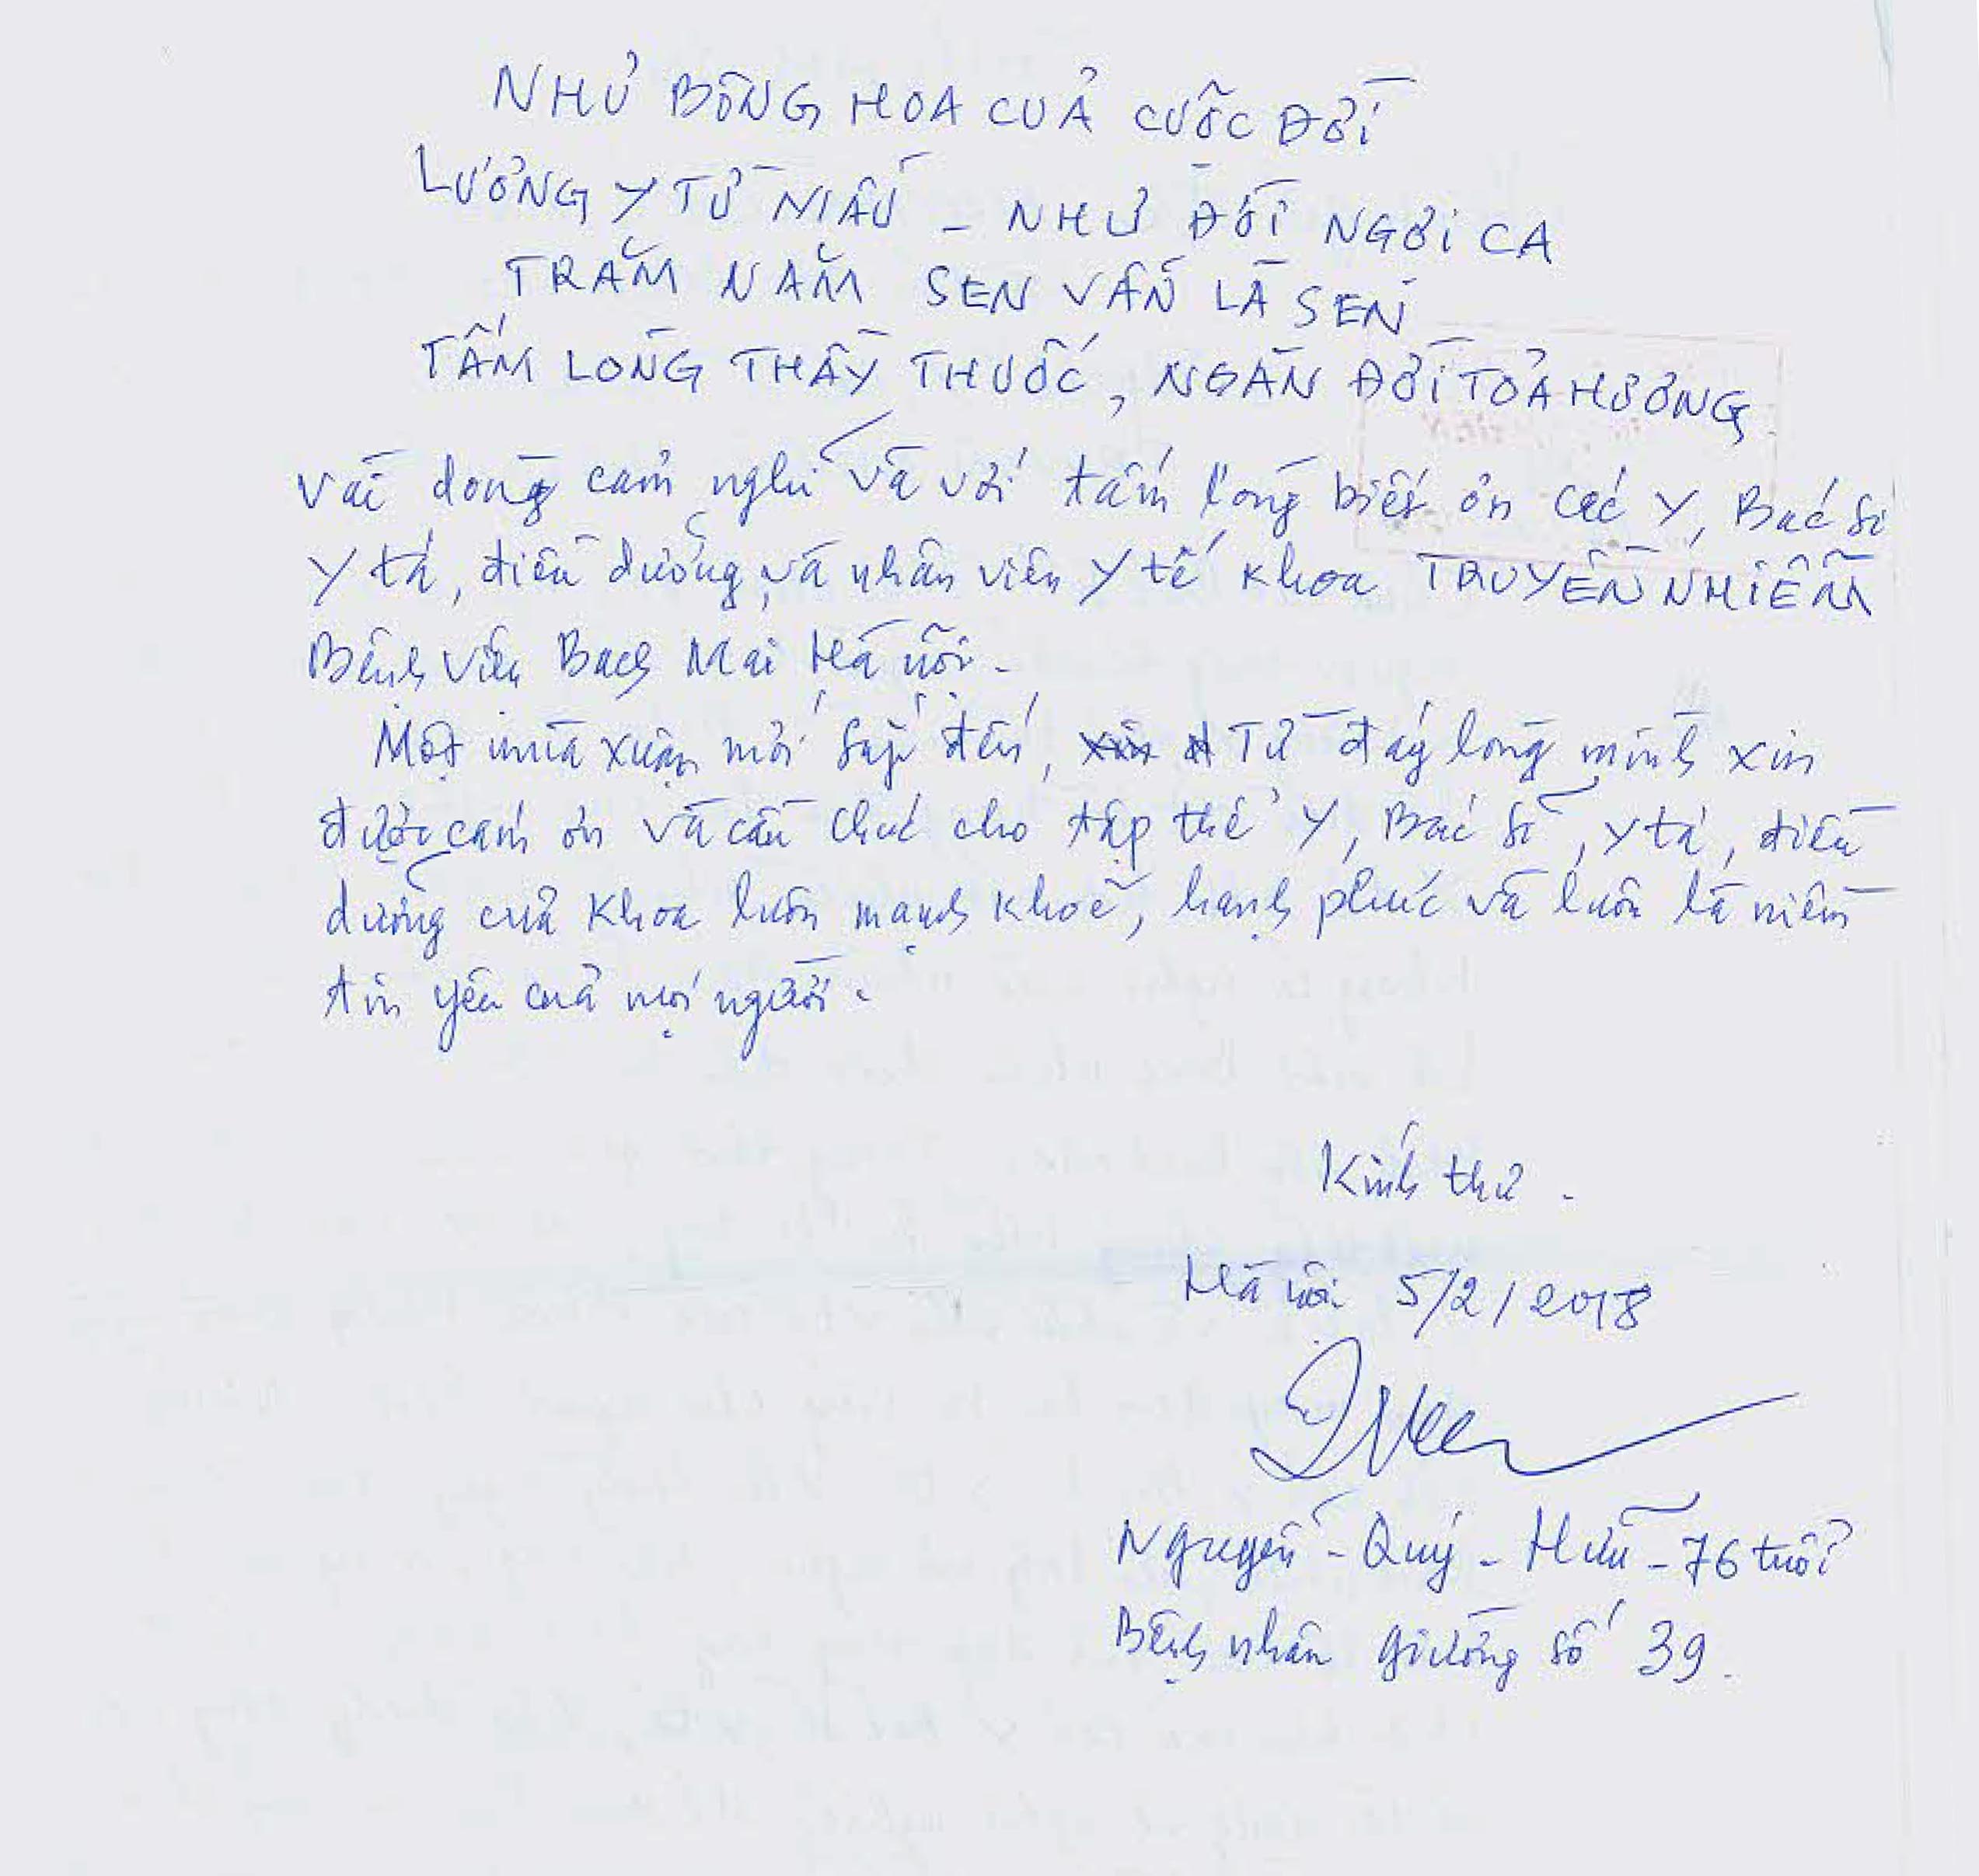 NHƯ BÔNG HOA CUẢ CUỘC ĐỜI
LƯƠNG Y TỪ MẪU - NHƯ ĐỜI NGỢI CA
TRĂM NĂM SEN VẪN LÀ SEN
TẤM LÒNG THẦY THUỐC, NGÀN ĐỜI TỎA HƯƠNG
Vài dòng cảm nghĩ và với tấm lòng biết ơn các Y, Bác sĩ
Y tá, điều dưỡng, và nhân viên y tế khoa TRUYỀN NHIỄM
Bệnh viện Bạch Mai Hà nội.
Một mùa xuân mới sắp đến, Từ đáy lòng mình xin
được cám ơn và cầu chúc cho tập thể Y, Bác sĩ, y tá, điều
dưỡng cuả Khoa luôn mạnh khoẻ, hạnh phúc và luôn là niềm
tin yêu cuả mọi người.
Kính thư.
Hà nội 5/2/2018
Nguyễn - Quý - Hữu - 76 tuổi
Bệnh nhân giường số 39.